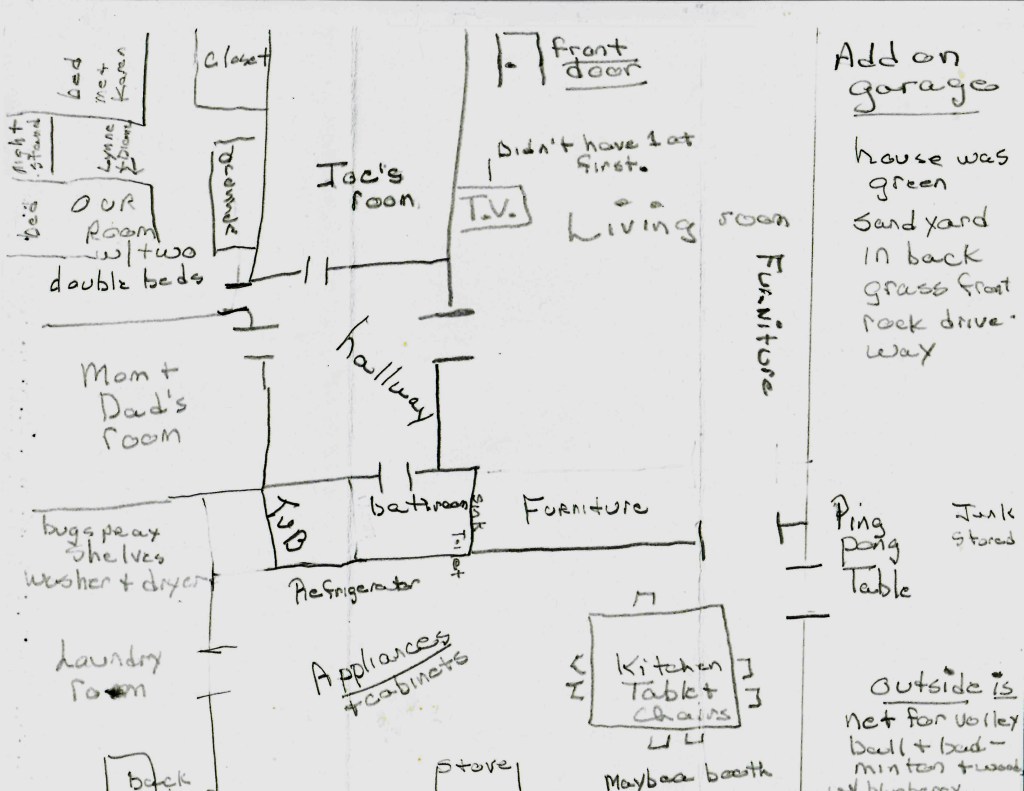 bed
me +
Karen
Closet
front
door
Add on
garage
night
stand
Lynne
+ Diane
bed
OUR
ROOM
w/two
double beds
Joe's
room
Didn't have 1 at
first.
T.V.
Living room
Furniture
house was
green
sandyard
in back
grass front
rock drive-
way
Mom +
Dad's
room
hallway
bugspray
shelves
washer + dryer
TUB
bathroom
Sink
Toilet
Furniture
Ping
pong
Table
Junk
Stored
Refrigerator
Laundry
room
Appliances
+ cabinets
Kitchen
Table +
Chairs
Outside is
net for volley
ball + bad-
minton + woods
w/ blueberry
back
Stove
Maybee booth